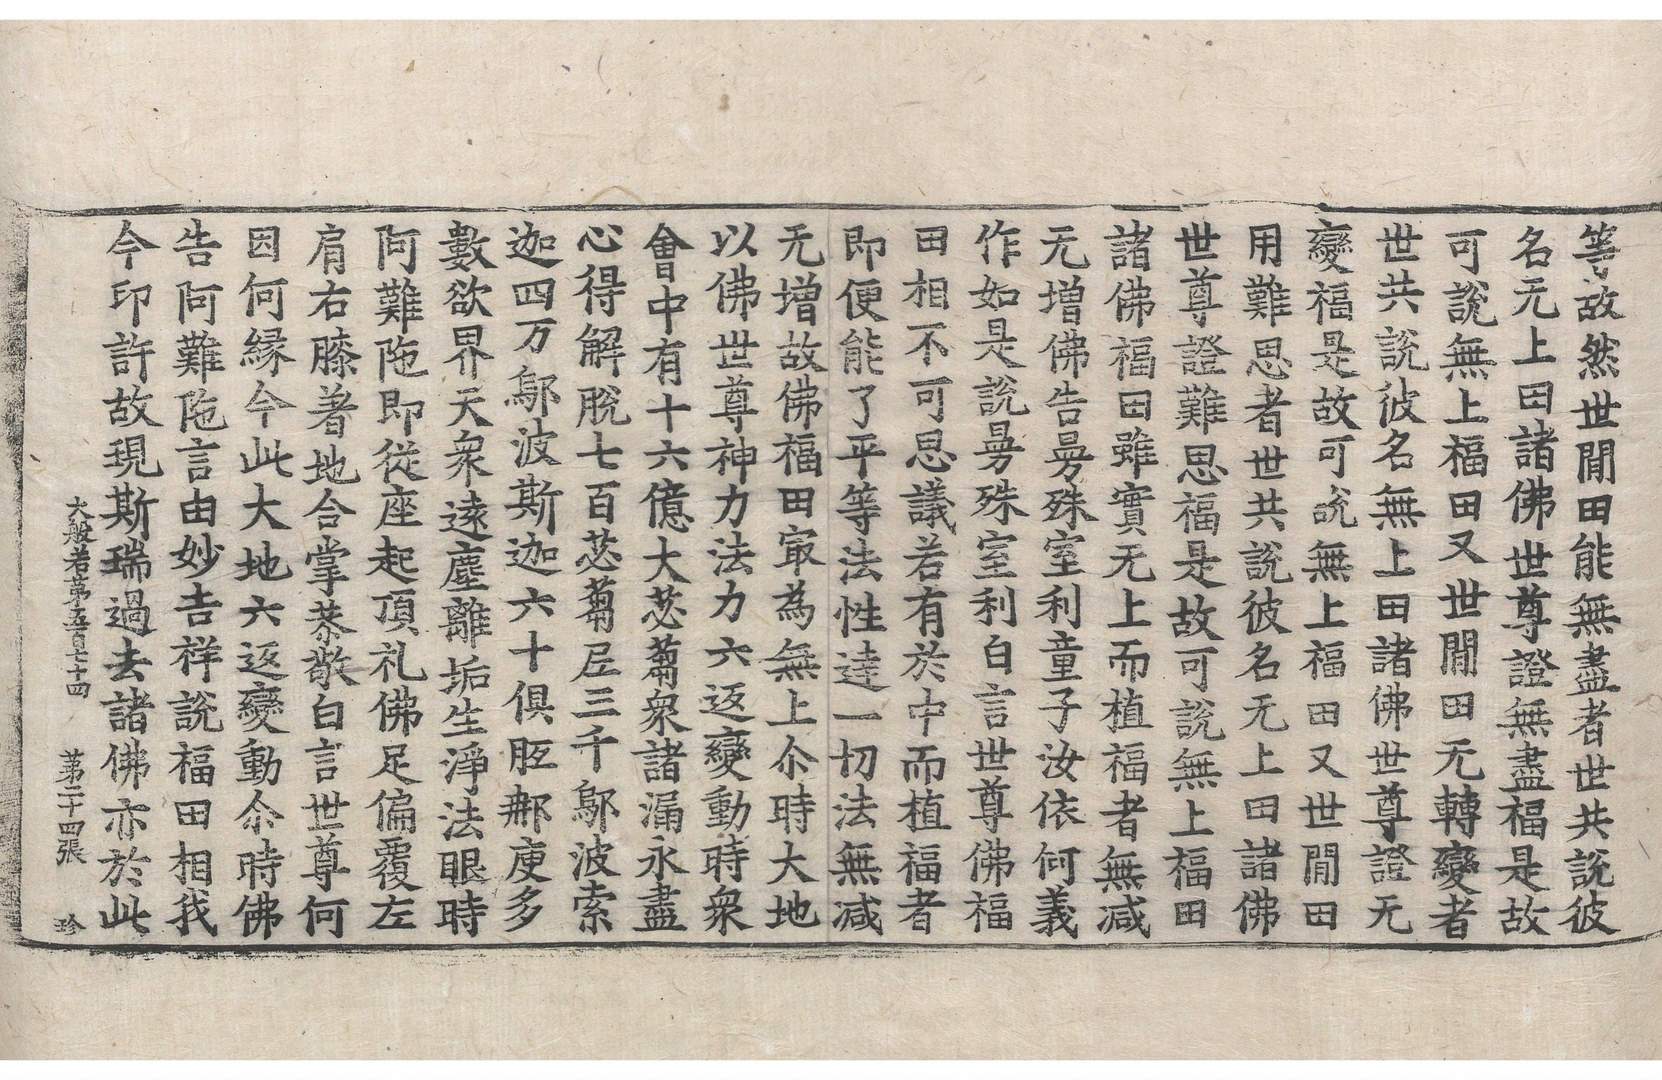 等故然世閒田能無盡者世共說彼
名无上田諸佛世尊證無盡福是故
可說無上福田又世閒田无轉變者
世共說彼名無上田諸佛世尊證无
變福是故可說無上福田又世閒田
用難思者世共說彼名无上田諸佛
世尊證難思福是故可說無上福田
諸佛福田雖實无上而植福者無減
无增佛告曼殊室利童子汝依何義
作如是說曼殊室利白言世尊佛福
田相不可思議若有於中而植福者
即便能了平等法性達一切法無減
无增故佛福田㝡為無上尒時大地
以佛世尊神力法力六返變動時衆
會中有十六億大苾蒭衆諸漏永盡
心得解脫七百苾蒭尼三千鄔波索
迦四万鄔波斯迦六十俱胝那庾多
數欲界天衆遠塵離垢生淨法眼時
阿難陁即從座起頂礼佛足偏覆左
肩右膝著地合掌恭敬白言世尊何
因何緣今此大地六返變動尒時佛
告阿難陁言由妙吉祥說福田相我
今印許故現斯瑞過去諸佛亦於此
大般若第五百七十四 第二十四張 珍